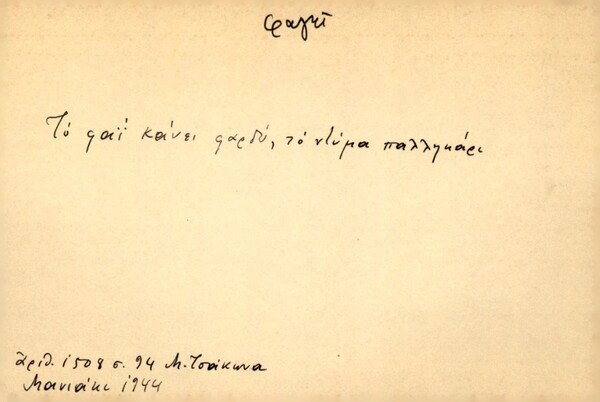 φαγεῖ
Τό φαΐ κάνει φαρδύ, τό ντύμα παλληκάρι
Ἀριθ. 1508 σ. 94 Μ. Τσάκωνα
Μανιάκι 1944